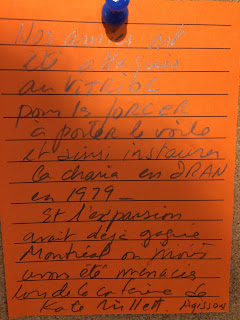 Nos amies ont
été attaquées
au VITRIOL
pour les FORCER
à porter le voile
et ainsi instaurer
la charia en IRAN
en 1979 —
Et l'expansion
avait déjà gagné
Montréal où nous
avons été menacées
lors de la de
Kate Millett Maison